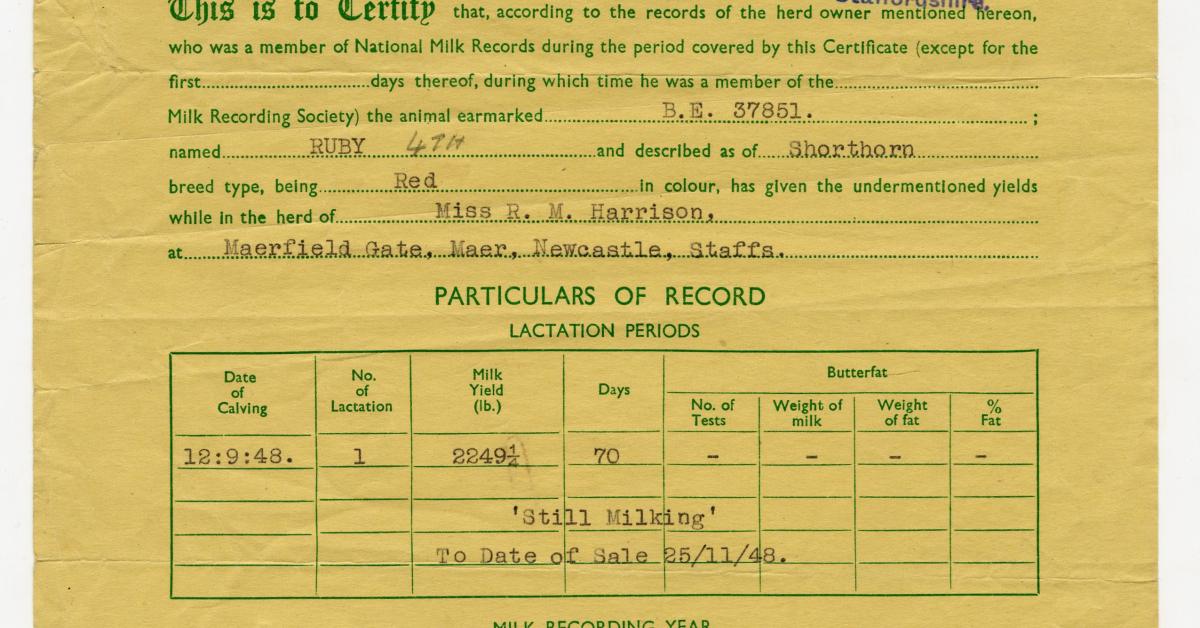 This is to Certify that, according to the records of the herd owner mentioned hereon,
who was a member of National Milk Records during the period covered by this Certificate (except for the
first days thereof, during which time he was a member of the
Milk Recording Society) the animal earmarked B.E. 37851. ;
named RUBY 4TH and described as of Shorthorn
breed type, being Red in colour, has given the undermentioned yields
while in the herd of Miss R. M. Harrison,
at Maerfield Gate, Maer, Newcastle, Staffs.
PARTICULARS OF RECORD
LACTATION PERIODS
Date of Calving No. of Lactation Milk Yield (lb.) Days Butterfat
No. of Tests Weight of milk Weight of fat % Fat
12:9:48. 1 2249¼ 70 - - - -
'Still Milking'
To Date of Sale 25/11/48.
MILK RECORDING YEAR